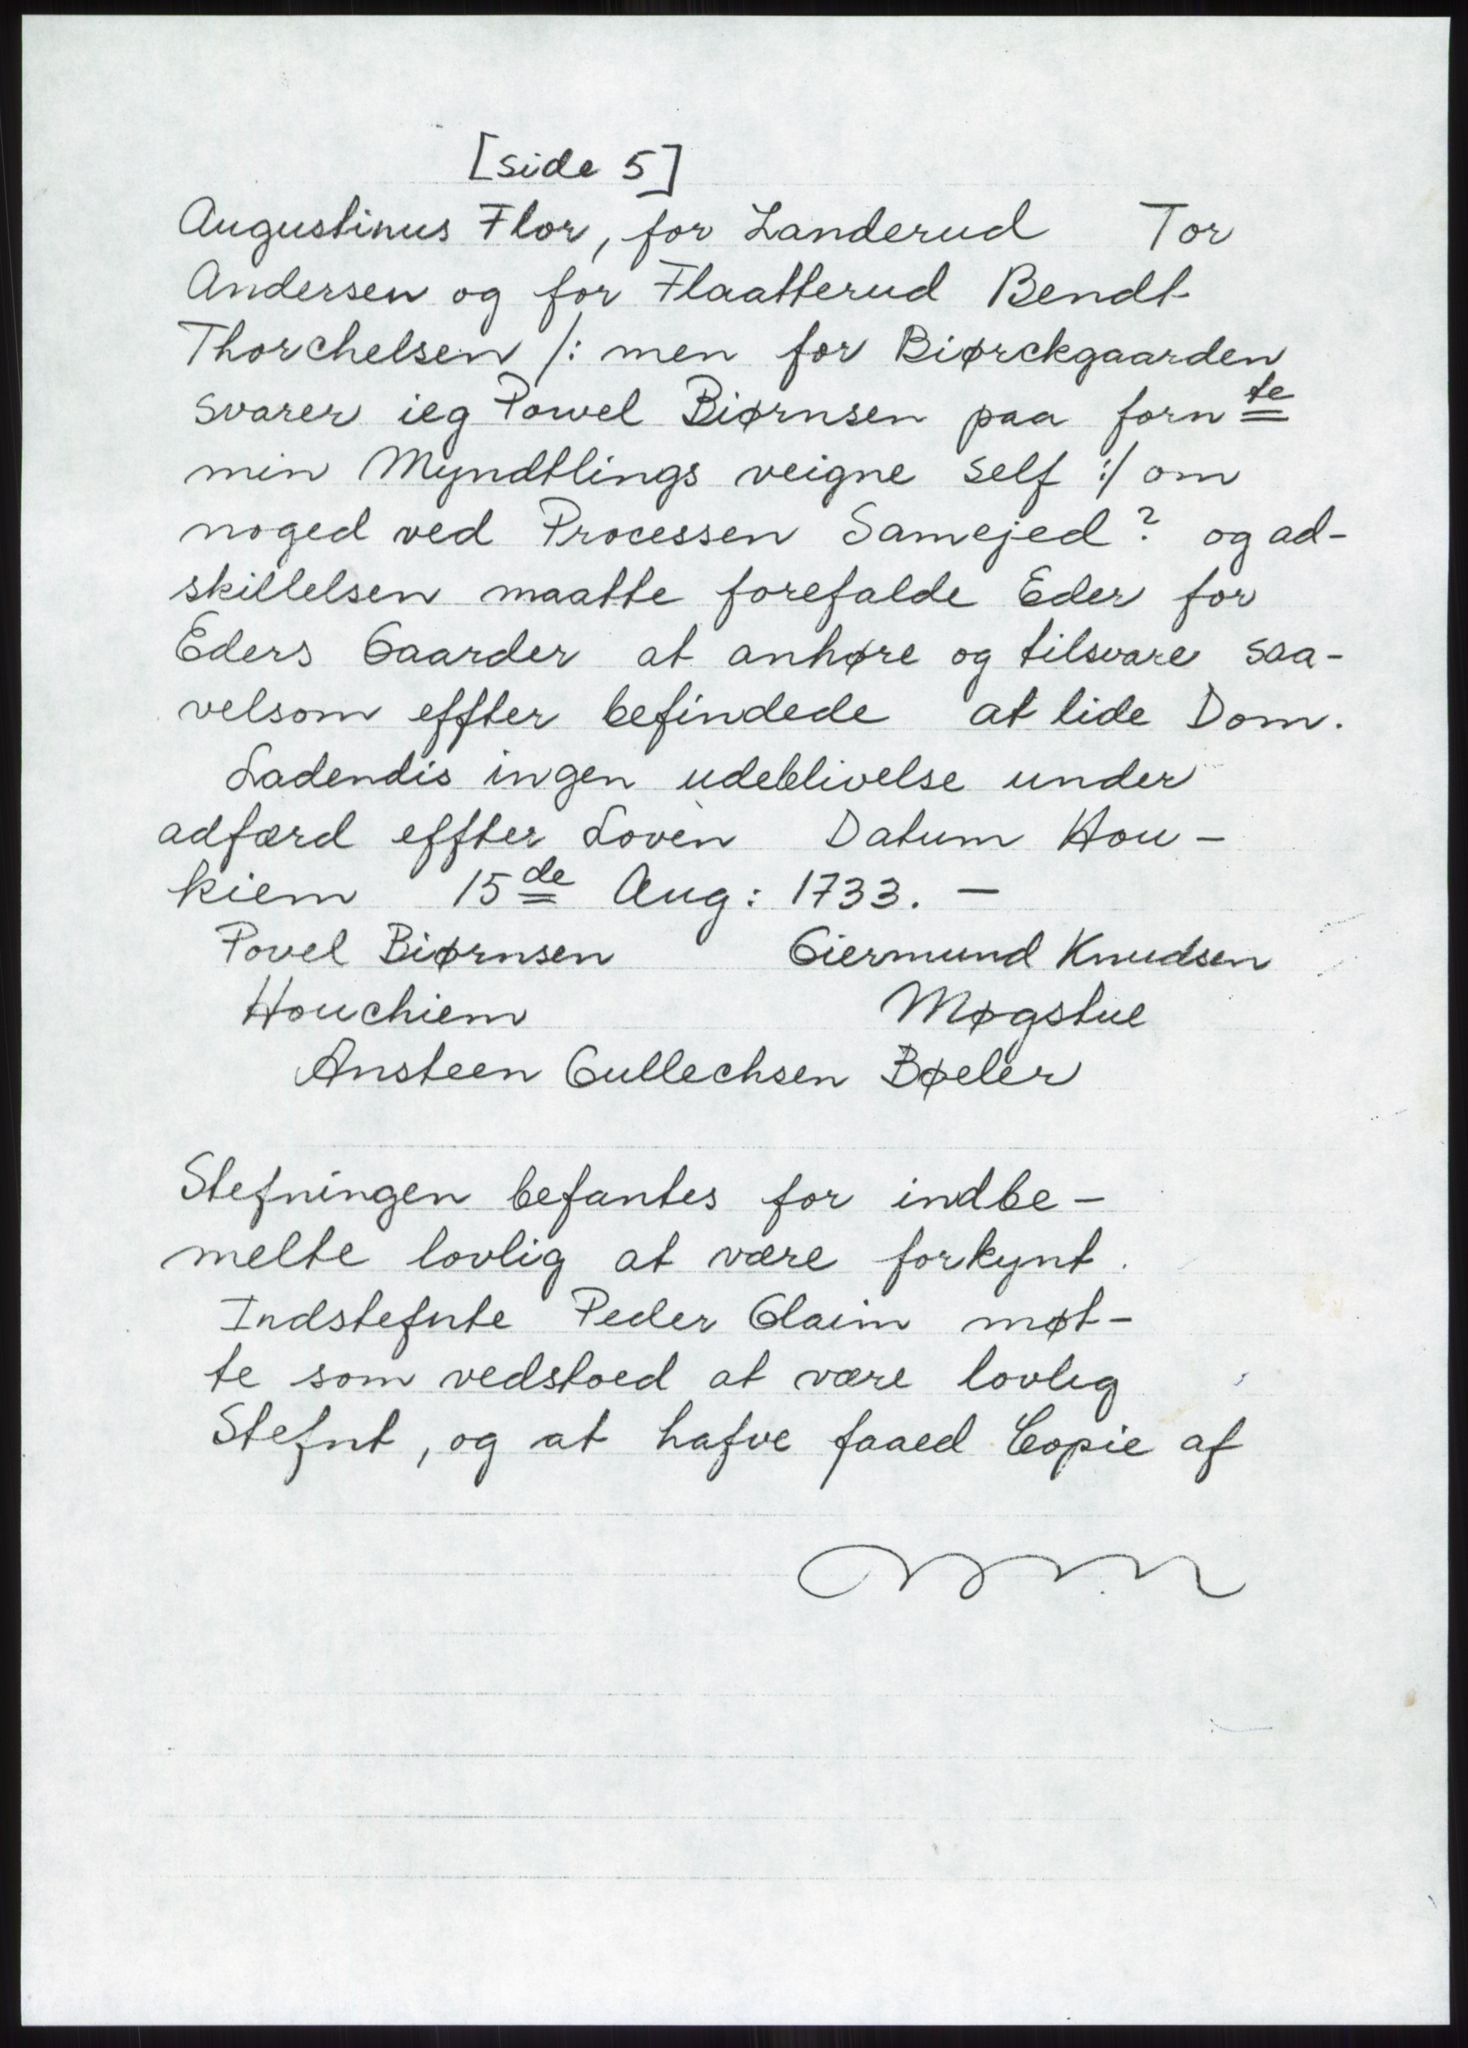 [side 5]
Augustinus Flor, for Landerud Tor
Andersen og for Flaatterud Bendt
Thorchelsen /: men for Biørckgaarden
svarer ieg Powel Biørnsen paa forn te
min Myndtlings veigne self :/ om
noged ved Processen Samejed? og ad-
skillelsen maatte forefalde Eder for
Eders Gaarder at anhøre og tilsvare saa-
velsom effter befindede at lide Dom.
Ladendis ingen udeblivelse under
adfærd effter Loven Datum Hou-
kiem 15de Aug: 1733. —
Povel Biørnsen Giermund Knudsen
Houchiem Møgstue
Ansteen Gullechsen Bøeler
Stefningen befantes for indbe-
melte lovlig at være forkynt.
Indstefnte Peder Glaim møt-
te som vedstoed at være lovlig
Stefnt, og at hafve faaed Copie af